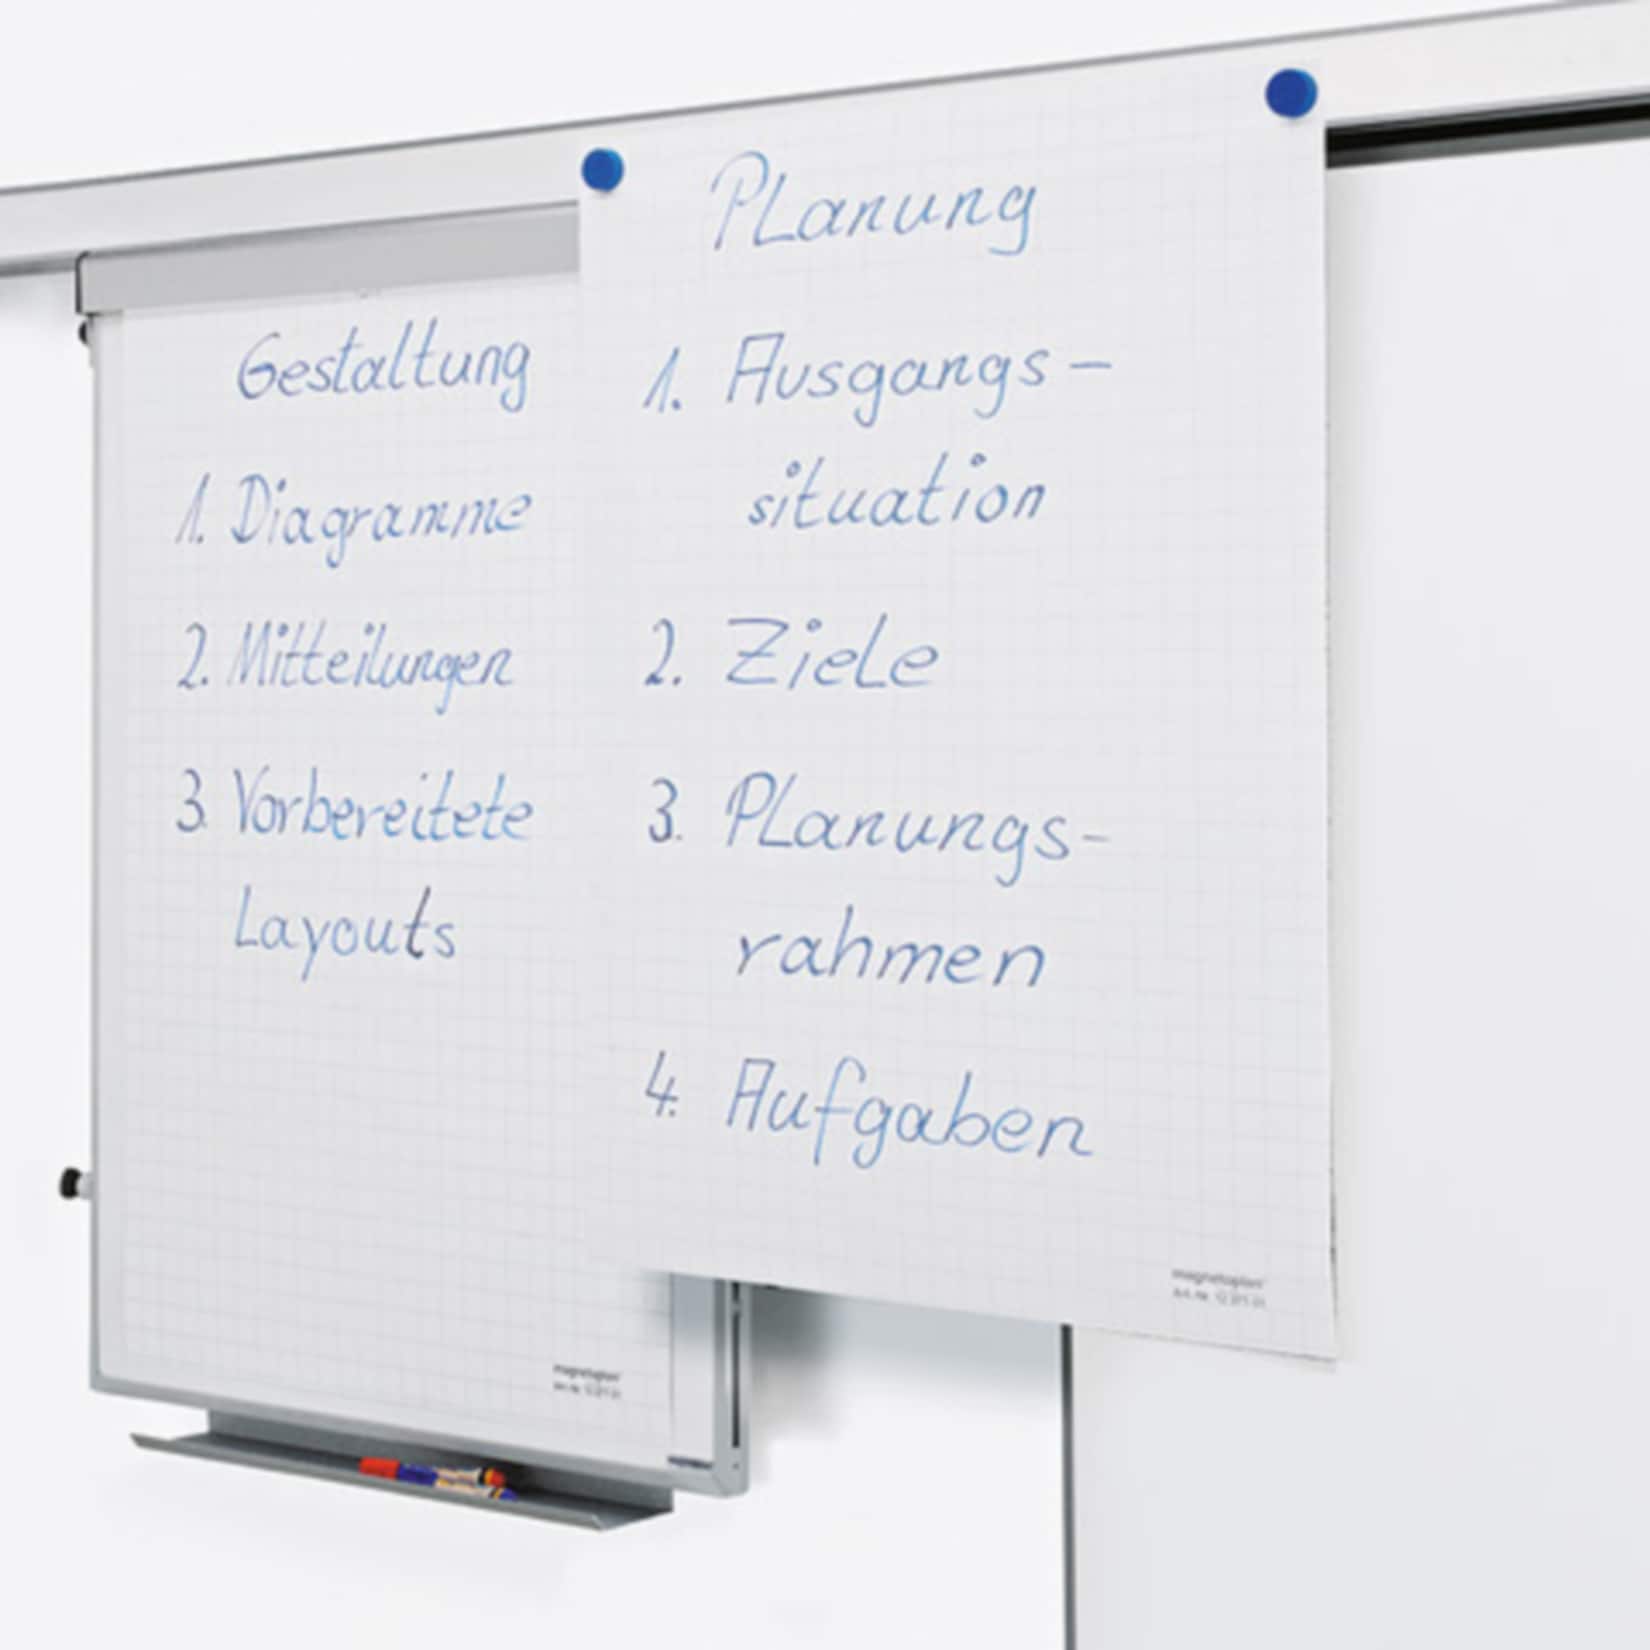 Gestaltung
1. Diagramme
2. Mitteilungen
3. Vorbereitete
Layouts
magnetoplan
Planung
1. Ausgangs-
situation
2. Ziele
3. Planungs-
rahmen
4. Aufgaben
magnetoplan